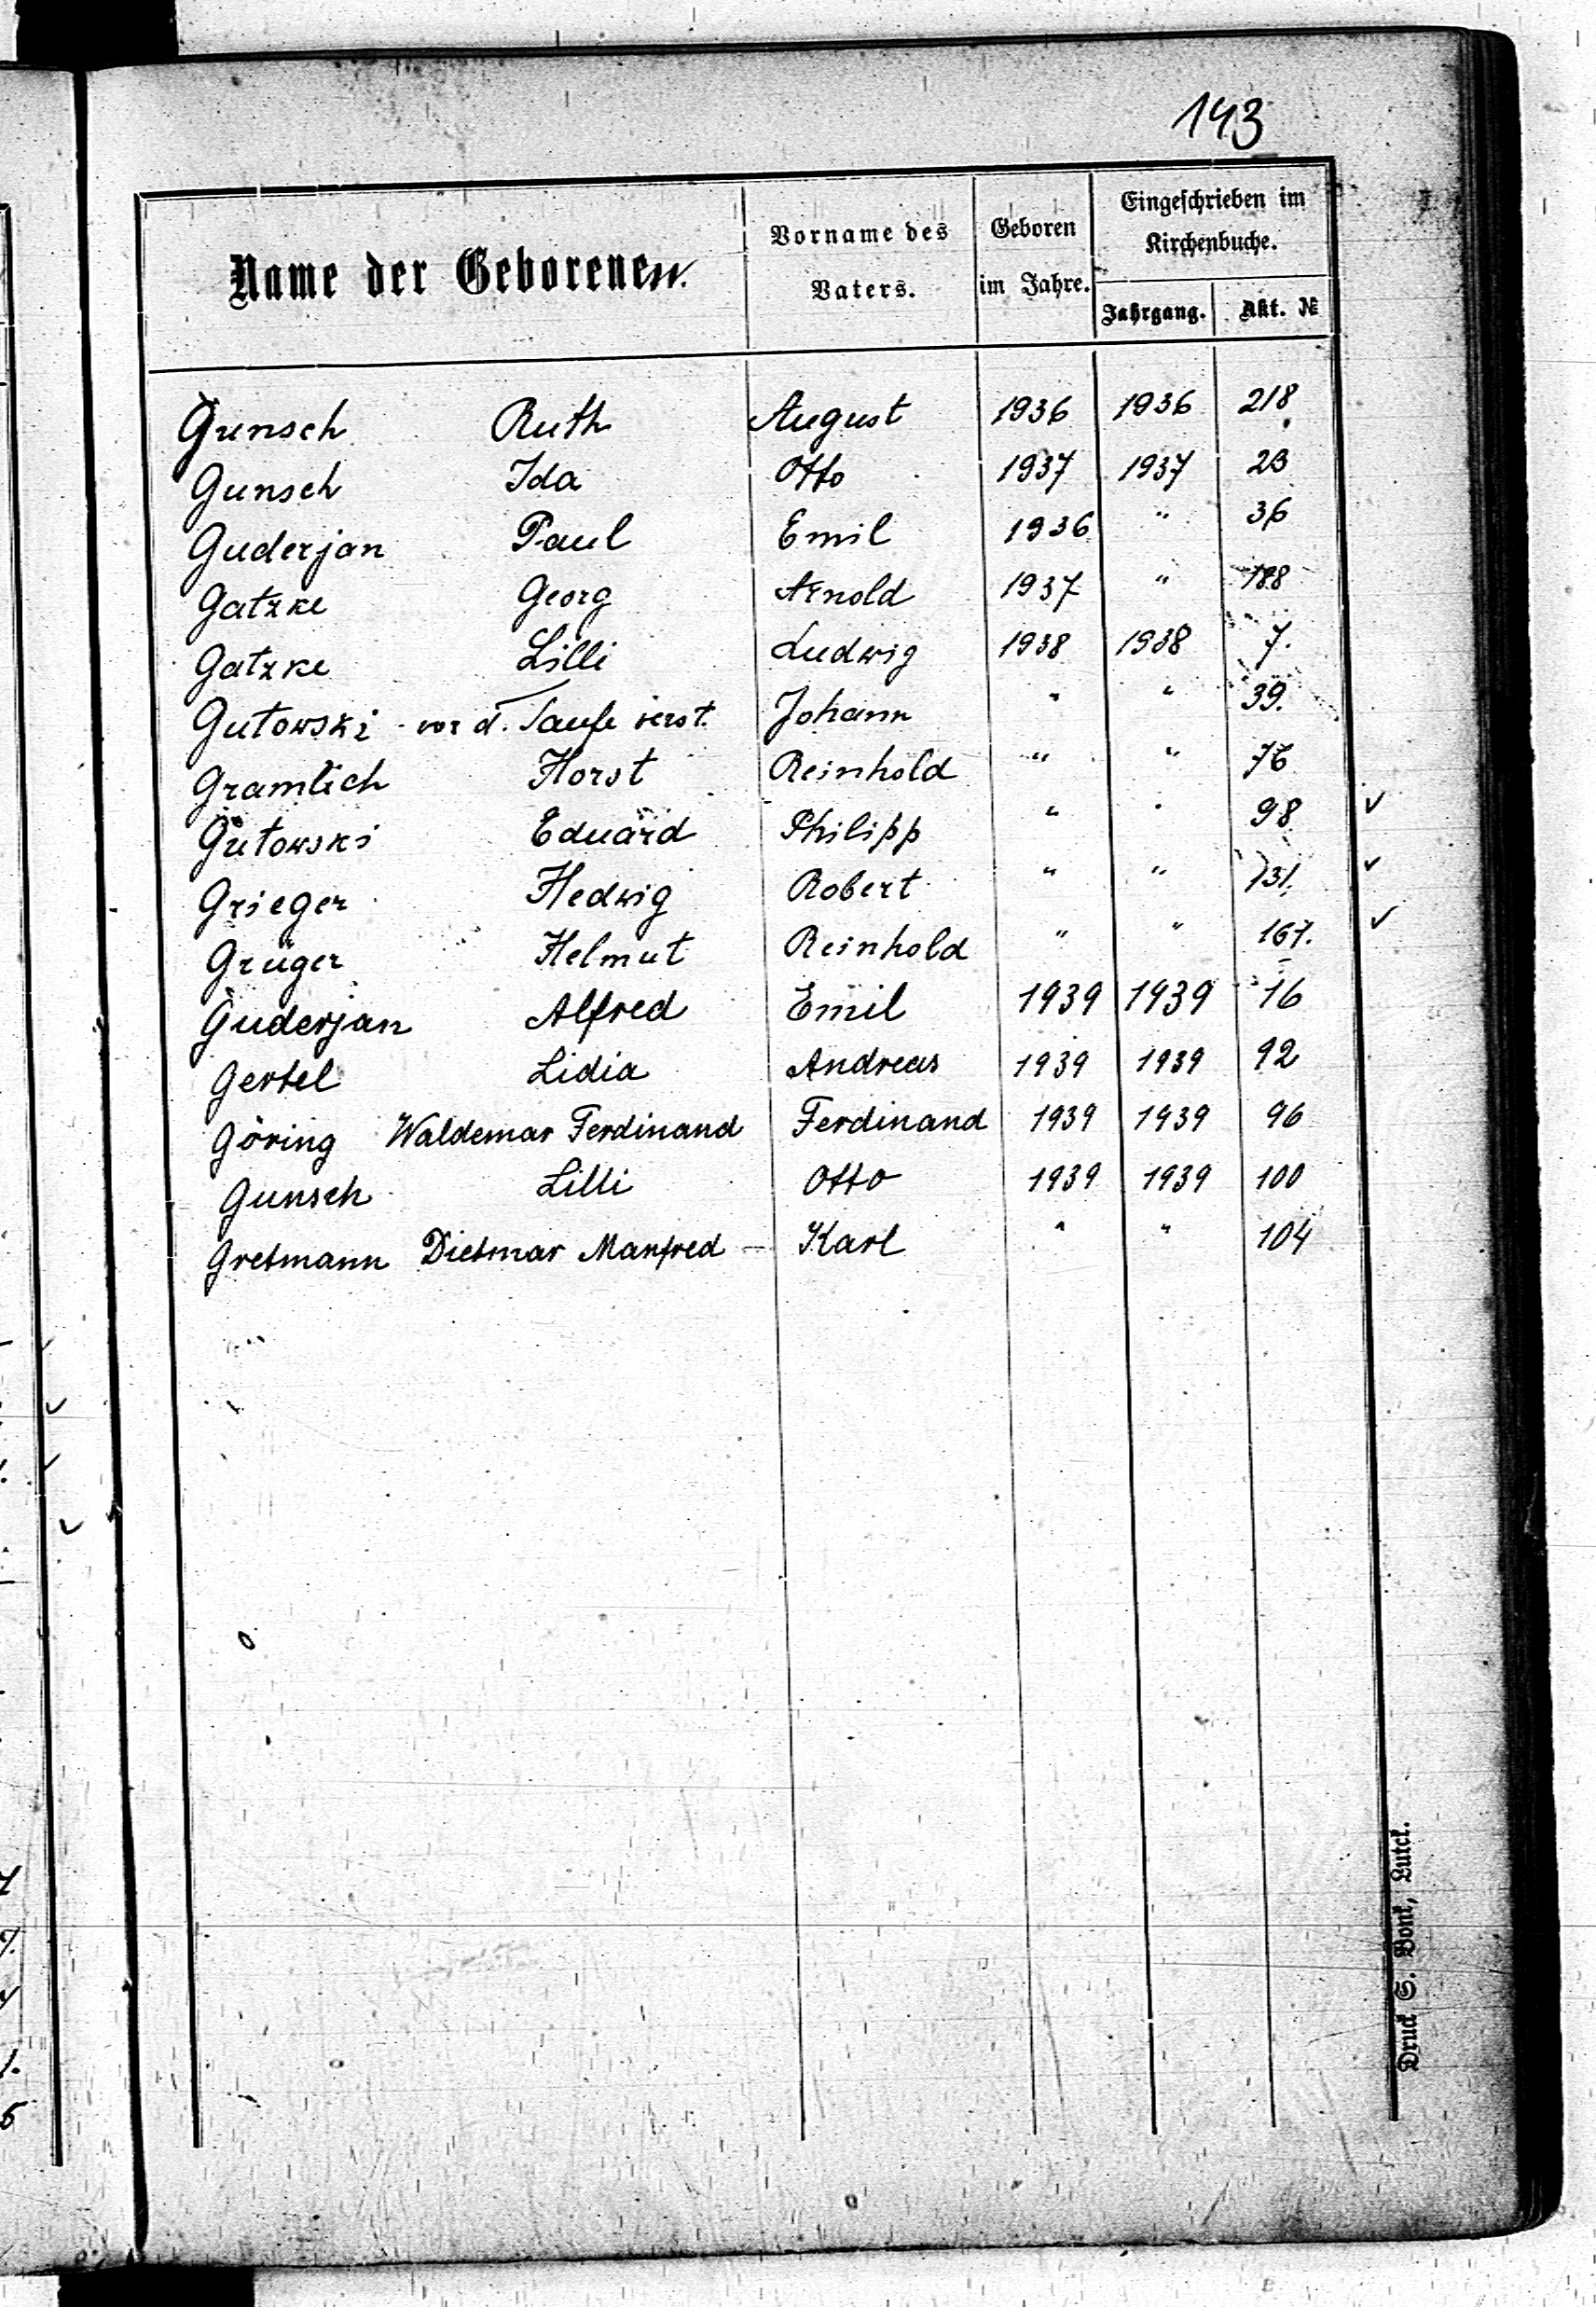 143
Name der Geborenen.
Vorname des Vaters.
Geboren im Jahre.
Eingeschrieben im Kirchenbuche.
Jahrgang. Akt. №
Gunsch Ruth August 1936 1936 218
Gunsch Ida Otto 1937 1937 23
Guderjan Paul Emil 1936 " 36
Gatzke Georg Arnold 1937 " 188
Gatzke Lilli Ludwig 1938 1938 7.
Gutowski - vor d. Taufe verst. Johann " " 39.
Gramlich Horst Reinhold " " 76
Gutowski Eduard Philipp " " 98 ✓
Grieger Hedwig Robert " " 131. ✓
Grüger Helmut Reinhold " " 167. ✓
Guderjan Alfred Emil 1939 1939 16
Gertel Lidia Andreas 1939 1939 92
Göring Waldemar Ferdinand Ferdinand 1939 1939 96
Gunsch Lilli Otto 1939 1939 100
Gretmann Dietmar Manfred — Karl " " 104
Druck S. Bonk, Luck.